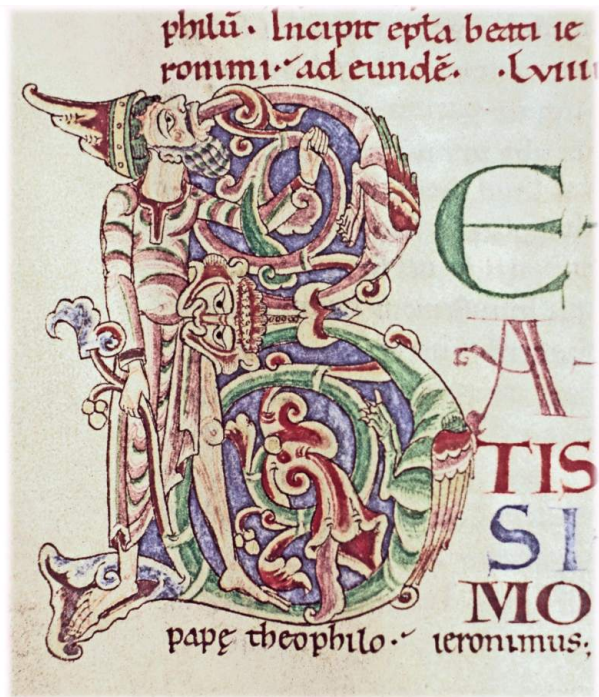 philū. Incipit epťa beati ie
ronimi. ad eundē. .Lviiii
BE
A
TIS
SI
MO
papę theophilo. ieronimus;